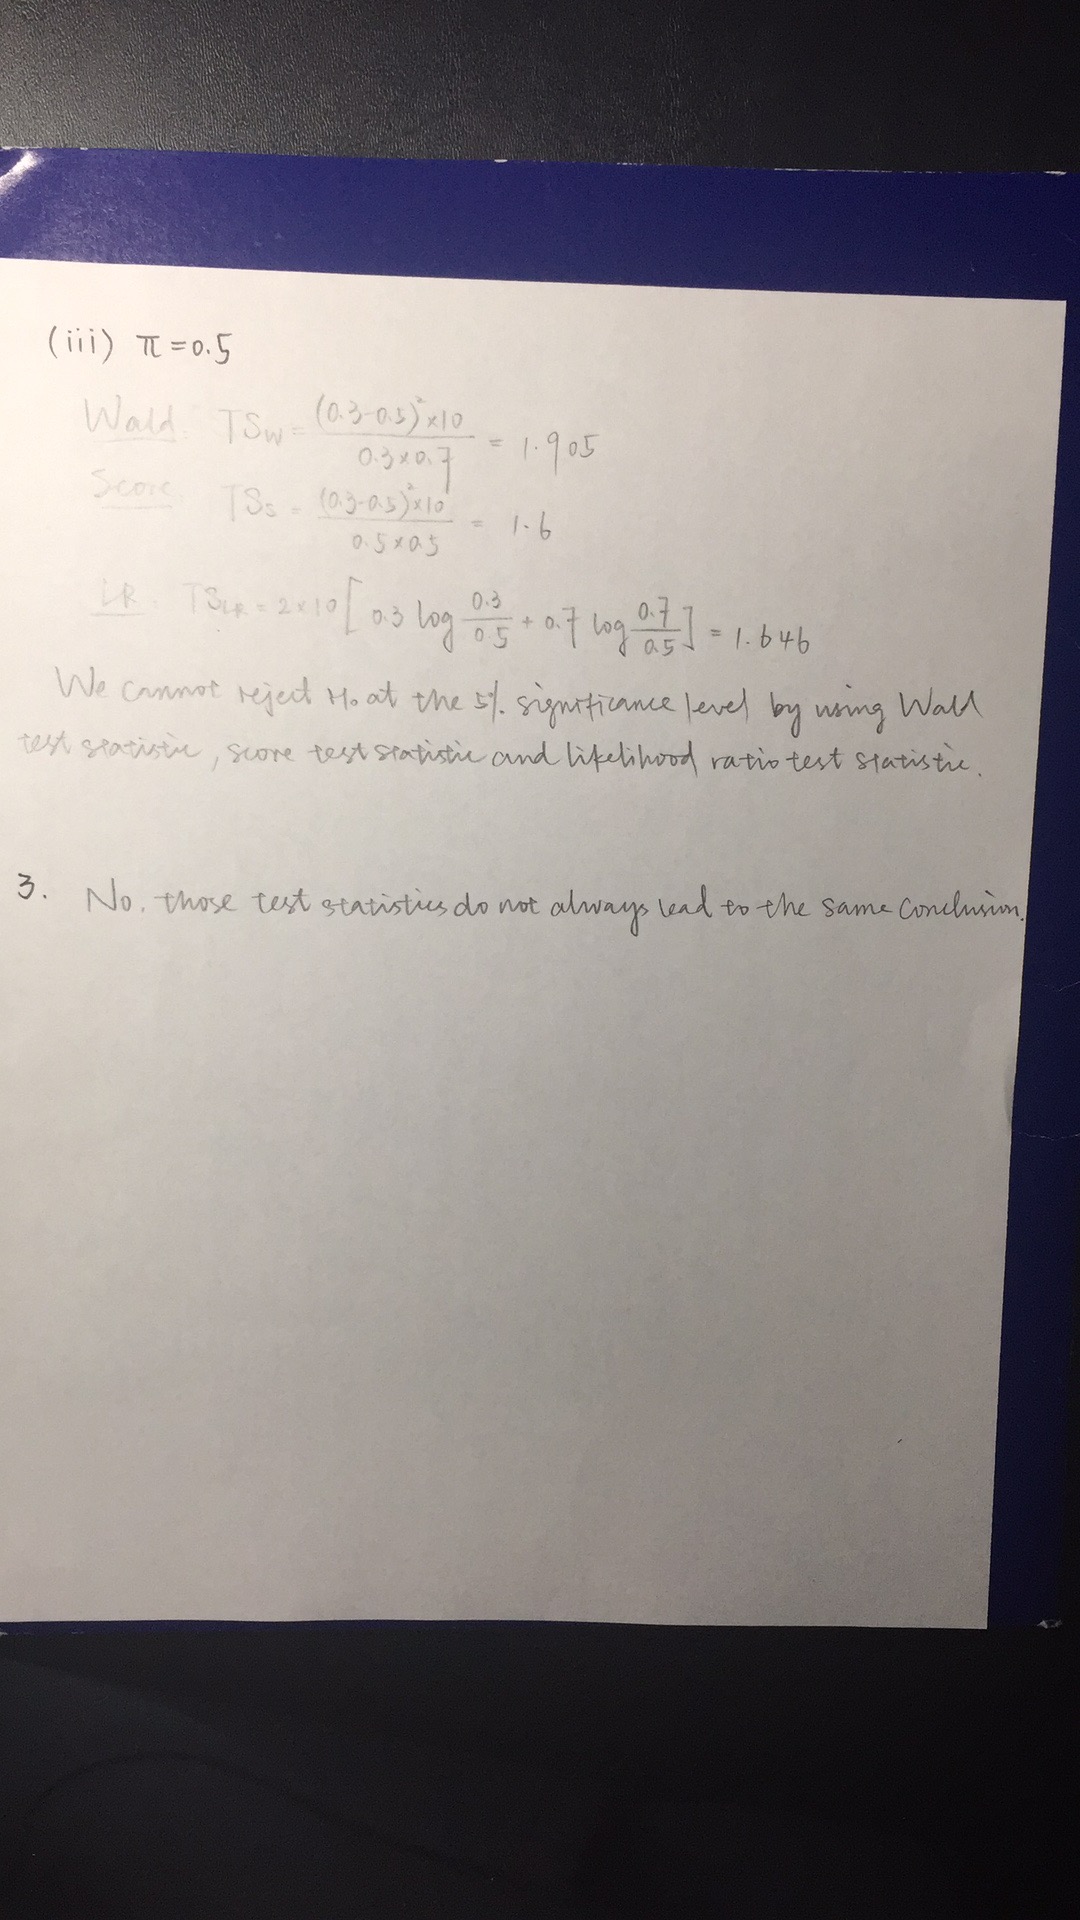 (iii) π=0.5
Wald: TS_W = (0.3-0.5)²×10 / 0.3×0.7 = 1.905
Score: TS_S = (0.3-0.5)²×10 / 0.5×0.5 = 1.6
LR: TS_LR = 2×10 [0.3 log 0.3/0.5 + 0.7 log 0.7/0.5] = 1.646
We cannot reject H₀ at the 5% significance level by using Wald
test statistic, score test statistic and likelihood ratio test statistic.
3. No, those test statistics do not always lead to the same conclusion.